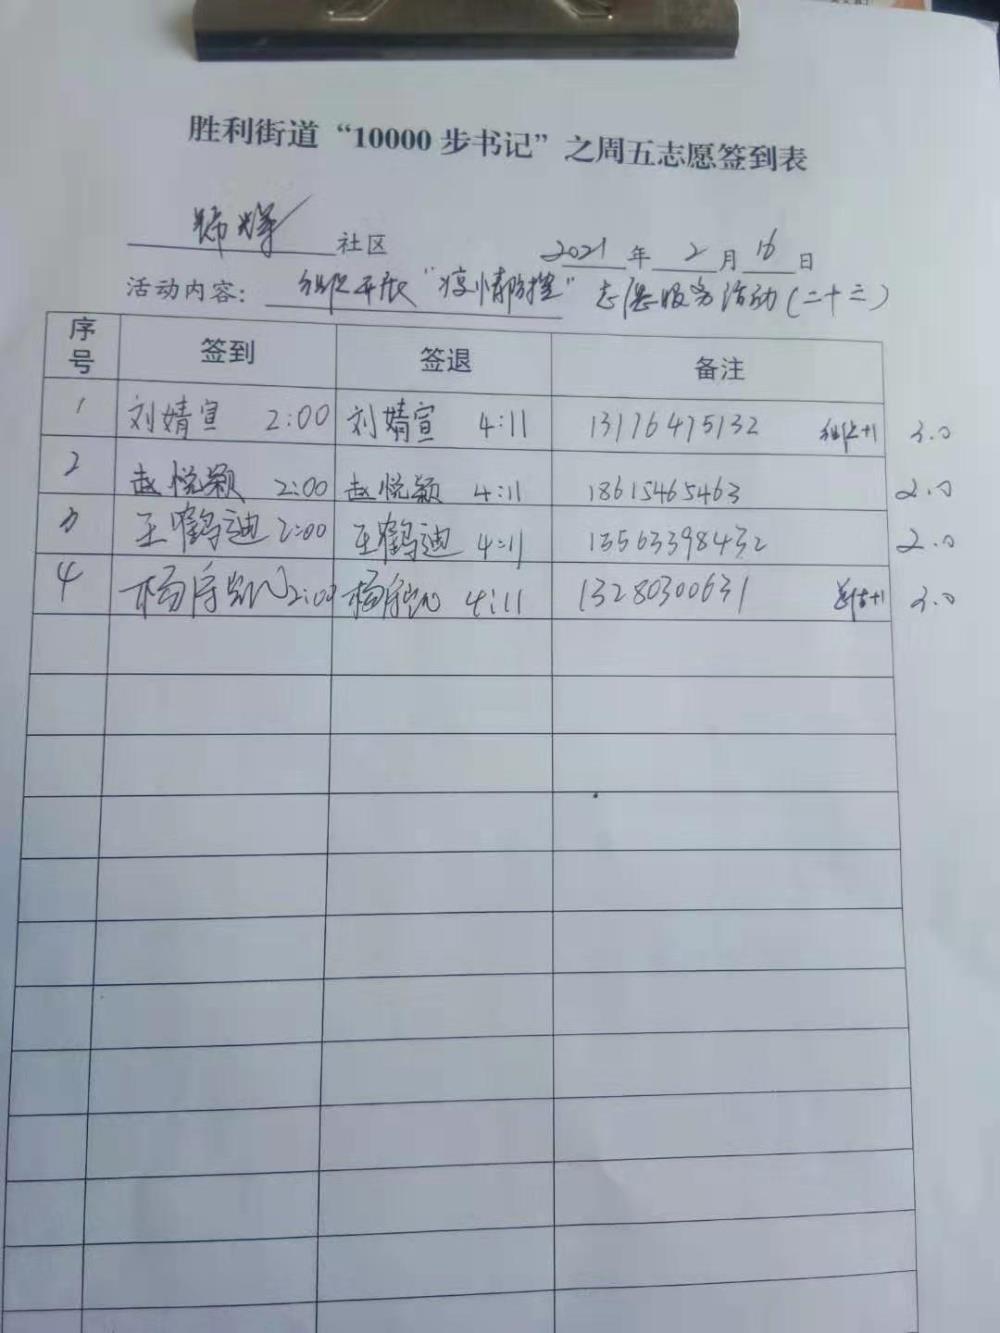 胜利街道“10000 步书记”之周五志愿签到表
社区 2021 年 2 月 16 日
活动内容： 组织开展“疫情防控”志愿服务活动(二十三)
序号 签到 签退 备注
1 刘婧宣 2:00 刘婧宣 4:11 13176475132 组织+1 3.0
2 赵悦颖 2:00 赵悦颖 4:11 18615465463 2.0
3 王鹤迪 2:00 王鹤迪 4:11 13563398432 2.0
4 2:00 4:11 13280300631 总结+1 3.0